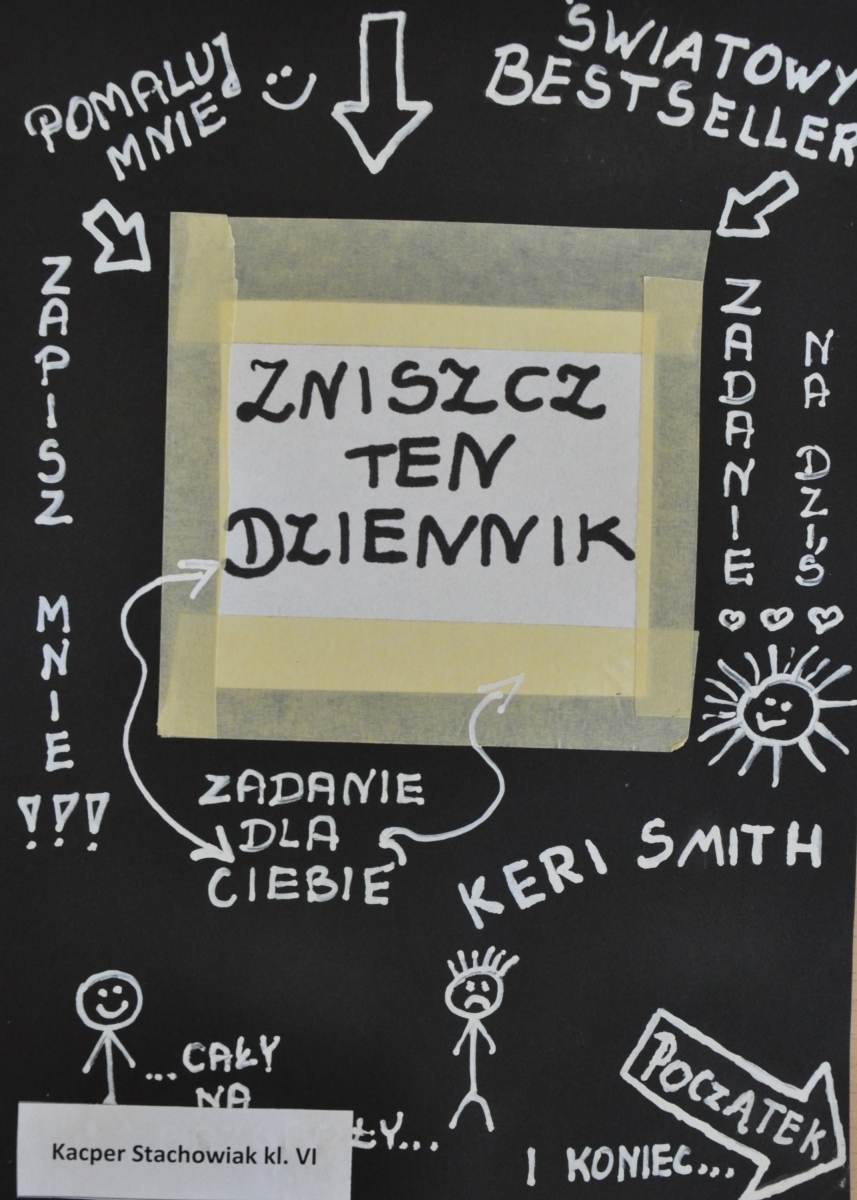 POMALUJ
MNIE
ŚWIATOWY
BESTSELLER
ZAPISZ MNIE !!!
ZNISZCZ
TEN
DZIENNIK
ZADANIE
NA DZIŚ
ZADANIE
DLA
CIEBIE
KERI SMITH
...CAŁY
NA
ŁY...
POCZĄTEK
I KONIEC...
Kacper Stachowiak kl. VI